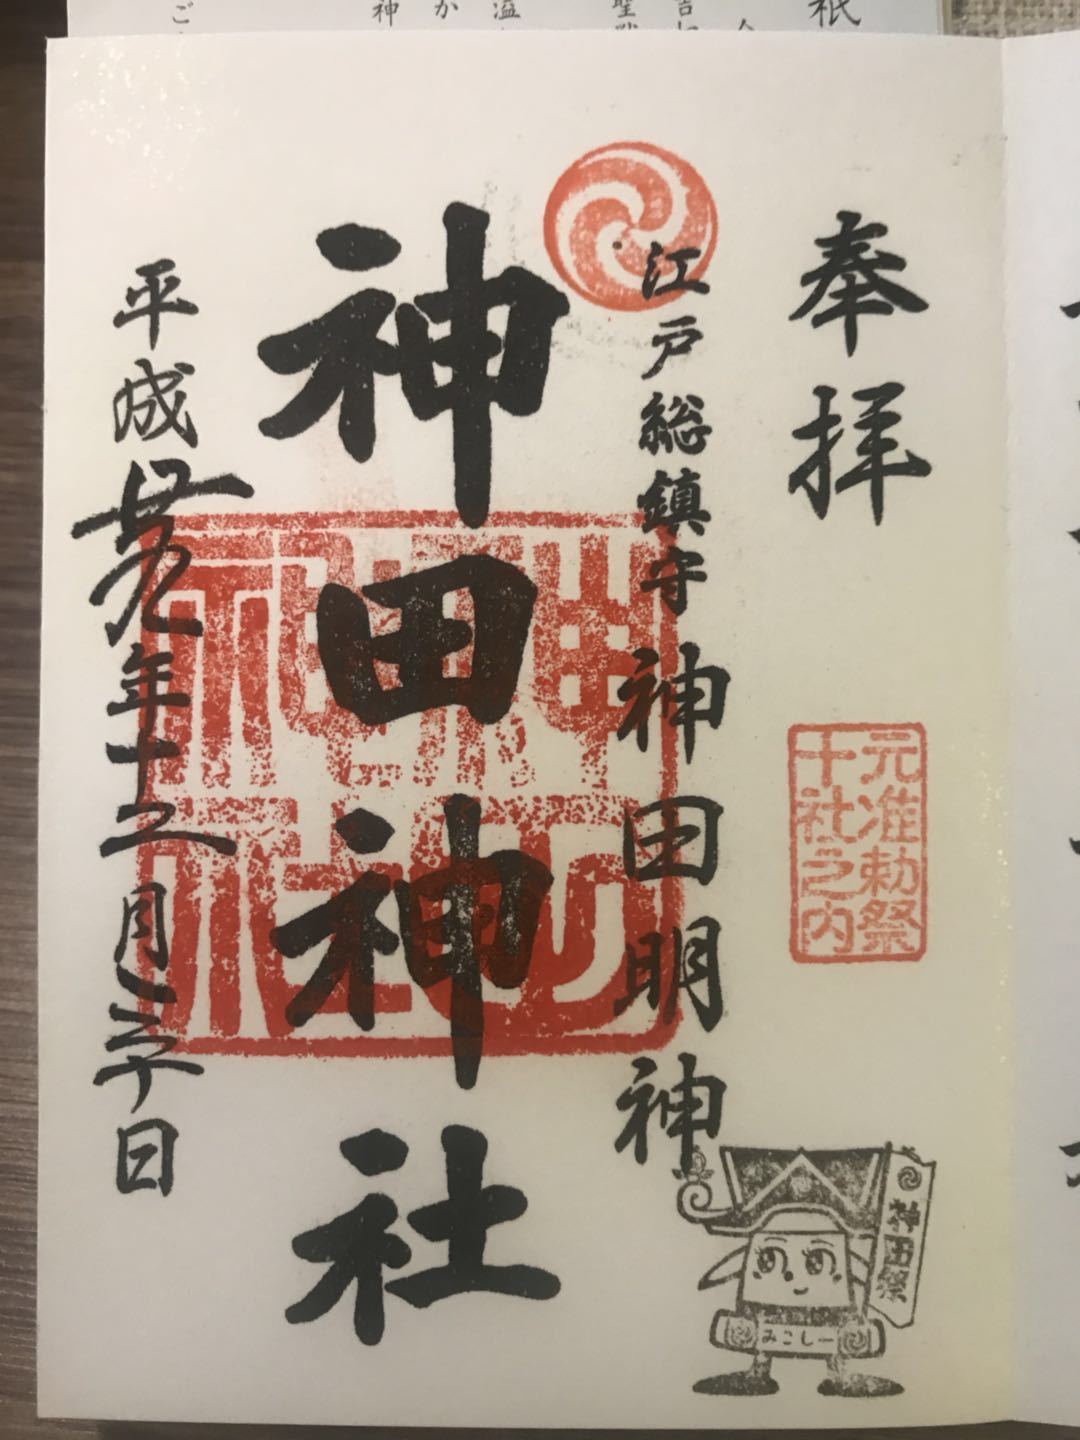 奉拝
元准勅祭
十社之内
江戸総鎮守 神田明神
神田神社
平成廿九年十二月二十日
神田祭
みこしー